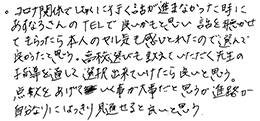 。コロナ関係でしゃくにすすく話が進まなかった時に
あすなろさんのTELで良いかもと思い話を聴かせ
てもらったら本人のヤル気も感じとれたので選んで
良かったと思う。高校選びも教えていただく先生の
子自身を通して選択出来ていけたら良いと思う。
点数をあげていく事が大事だと思うが進路が
自分なりにはっきり見通せると良いと思う